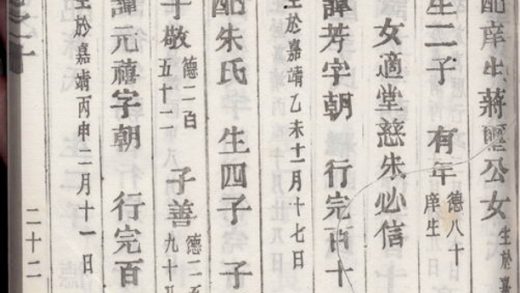 配庠生蔣公女 生於嘉
生二子 有年 德八十 庠生
女適堂慈朱必信
諱芳字朝 行完百十
生於嘉靖乙未十一月十七日
配朱氏 生四子 子
子敬 德二百五十二 子善 德二 九十
諱元禧字朝 行完百
生於嘉靖丙申二月十一日
二十二